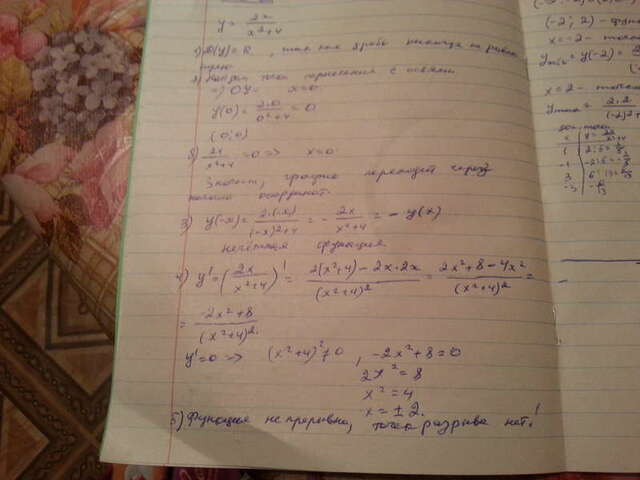 y = 2x / (x²+4)
1) D(y) = R, так как дробь
нулю
2) Найдём точки пересечения с осями
а) OY: x=0
y(0) = 2·0 / (0²+4) = 0
(0;0)
б) 2x / (x²+4) = 0 => x=0
Значит, график пересекает через
начало координат.
3) y(-x) = 2·(-x) / ((-x)²+4) = - 2x / (x²+4) = - y(x)
нечётная функция
4) y' = (2x / (x²+4))' = (2(x²+4) - 2x·2x) / (x²+4)² = (2x²+8-4x²) / (x²+4)² =
= (-2x²+8) / (x²+4)²
y'=0 => (x²+4)²≠0, -2x²+8=0
2x²=8
x²=4
x=±2.
5) Функция непрерывна, точек разрыва нет!
(-2; 2) -
x=-2 -
y min = y(-2) =
x=2 -
y max = 2·2 / (-2)²+
доп. точки